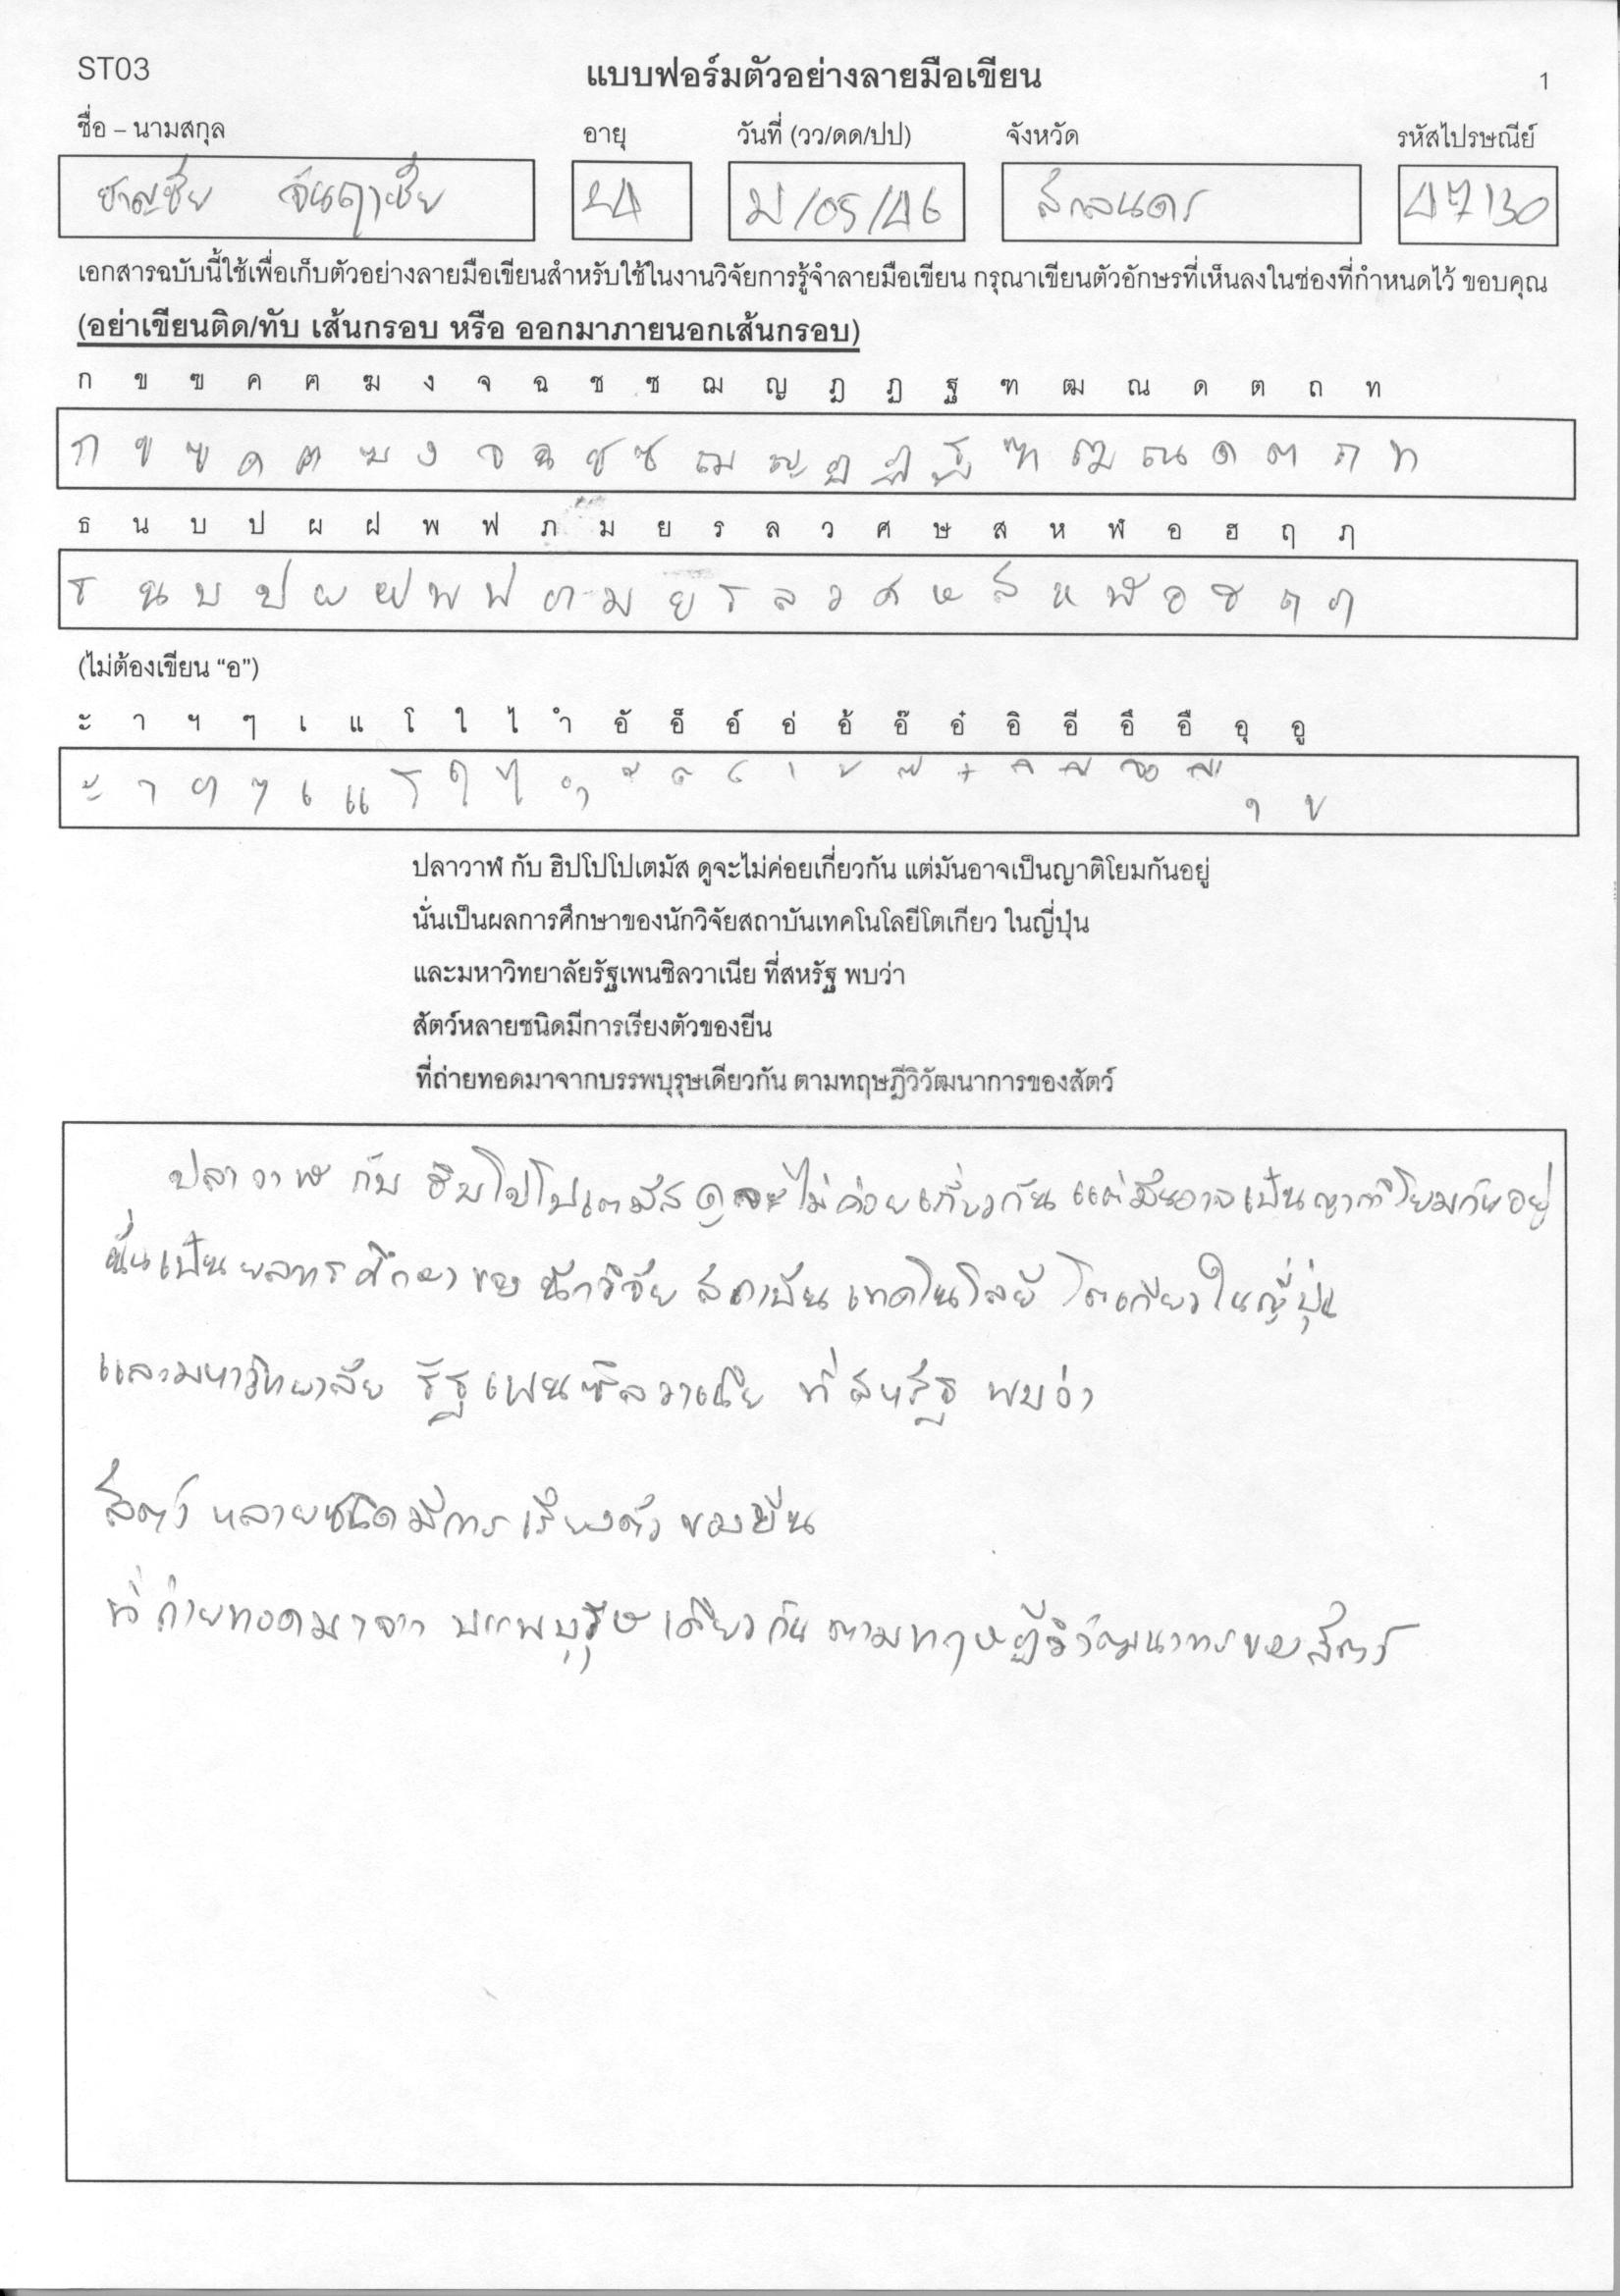 ST03
แบบฟอร์มตัวอย่างลายมือเขียน
1
ชื่อ – นามสกุล อายุ วันที่ (วว/ดด/ปป) จังหวัด รหัสไปรษณีย์
ชาญชัย /05/46 สกลนคร 47130
เอกสารฉบับนี้ใช้เพื่อเก็บตัวอย่างลายมือเขียนสำหรับใช้ในงานวิจัยการรู้จำลายมือเขียน กรุณาเขียนตัวอักษรที่เห็นลงในช่องที่กำหนดไว้ ขอบคุณ
(อย่าเขียนติด/ทับ เส้นกรอบ หรือ ออกมาภายนอกเส้นกรอบ)
ก ข ฃ ค ฅ ฆ ง จ ฉ ช ซ ฌ ญ ฎ ฏ ฐ ฑ ฒ ณ ด ต ถ ท
ก ข ฃ ค ฅ ฆ ง จ ฉ ช ซ ฌ ญ ฎ ฏ ฐ ฑ ฒ ณ ด ต ถ ท
ธ น บ ป ผ ฝ พ ฟ ภ ม ย ร ล ว ศ ษ ส ห ฬ อ ฮ ฤ ฦ
ธ น บ ป ผ ฝ พ ฟ ภ ม ย ร ล ว ศ ษ ส ห ฬ อ ฮ ฤ ฦ
(ไม่ต้องเขียน “อ”)
ะ า ฯ ๆ เ แ โ ใ ไ ำ อั อ็ อ์ อ่ อ้ อ๊ อ๋ อิ อี อึ อื อุ อู
ะ า ฯ ๆ เ แ โ ใ ไ ำ ั ็ ์ ่ ้ ๊ ๋ ิ ี ึ ื ุ ู
ปลาวาฬ กับ ฮิปโปโปเตมัส ดูจะไม่ค่อยเกี่ยวกัน แต่มันอาจเป็นญาติโยมกันอยู่
นั่นเป็นผลการศึกษาของนักวิจัยสถาบันเทคโนโลยีโตเกียว ในญี่ปุ่น
และมหาวิทยาลัยรัฐเพนซิลวาเนีย ที่สหรัฐ พบว่า
สัตว์หลายชนิดมีการเรียงตัวของยีน
ที่ถ่ายทอดมาจากบรรพบุรุษเดียวกัน ตามทฤษฎีวิวัฒนาการของสัตว์
ปลาวาฬ กับ ฮิปโปโปเตมัส ดูจะไม่ค่อยเกี่ยวกัน แต่มันอาจเป็นญาติโยมกันอยู่
นั่นเป็นผลการศึกษาของ นักวิจัย สถาบัน เทคโนโลยี โตเกียว ในญี่ปุ่น
และมหาวิทยาลัย รัฐเพนซิลวาเนีย ที่ สหรัฐ พบว่า
สัตว์ หลายชนิด มีการ เรียงตัว ของยีน
ที่ ถ่ายทอดมาจาก บรรพบุรุษ เดียวกัน ตามทฤษฎีวิวัฒนาการของสัตว์